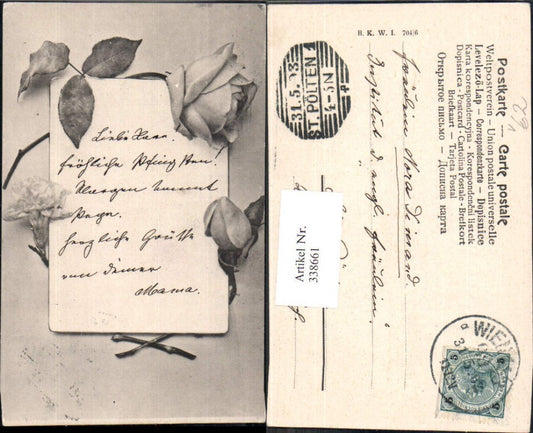 Liebe Nora.
fröhliche Pfingsten.
Morgen kommt
Papa.
herzliche Grüsse
von Deiner
Mama.
B. K. W. I. 704/6
Postkarte — Carte postale
Weltpostverein — Union postale universelle
Levelező-Lap — Correspondenzkarte — Dopisnice
Karta korespondencyjna - Korespondenční listek
Dopisnica - Postcard - Cartolina Postale - Brefkort
Briefkaart — Tarjeta Postal
Открытое письмо — Дописна карта
Fräulein Nora
Institut d. engl. Fräulein
ST. PÖLTEN 1
31.5.03
WIEN
Artikel Nr.
338661